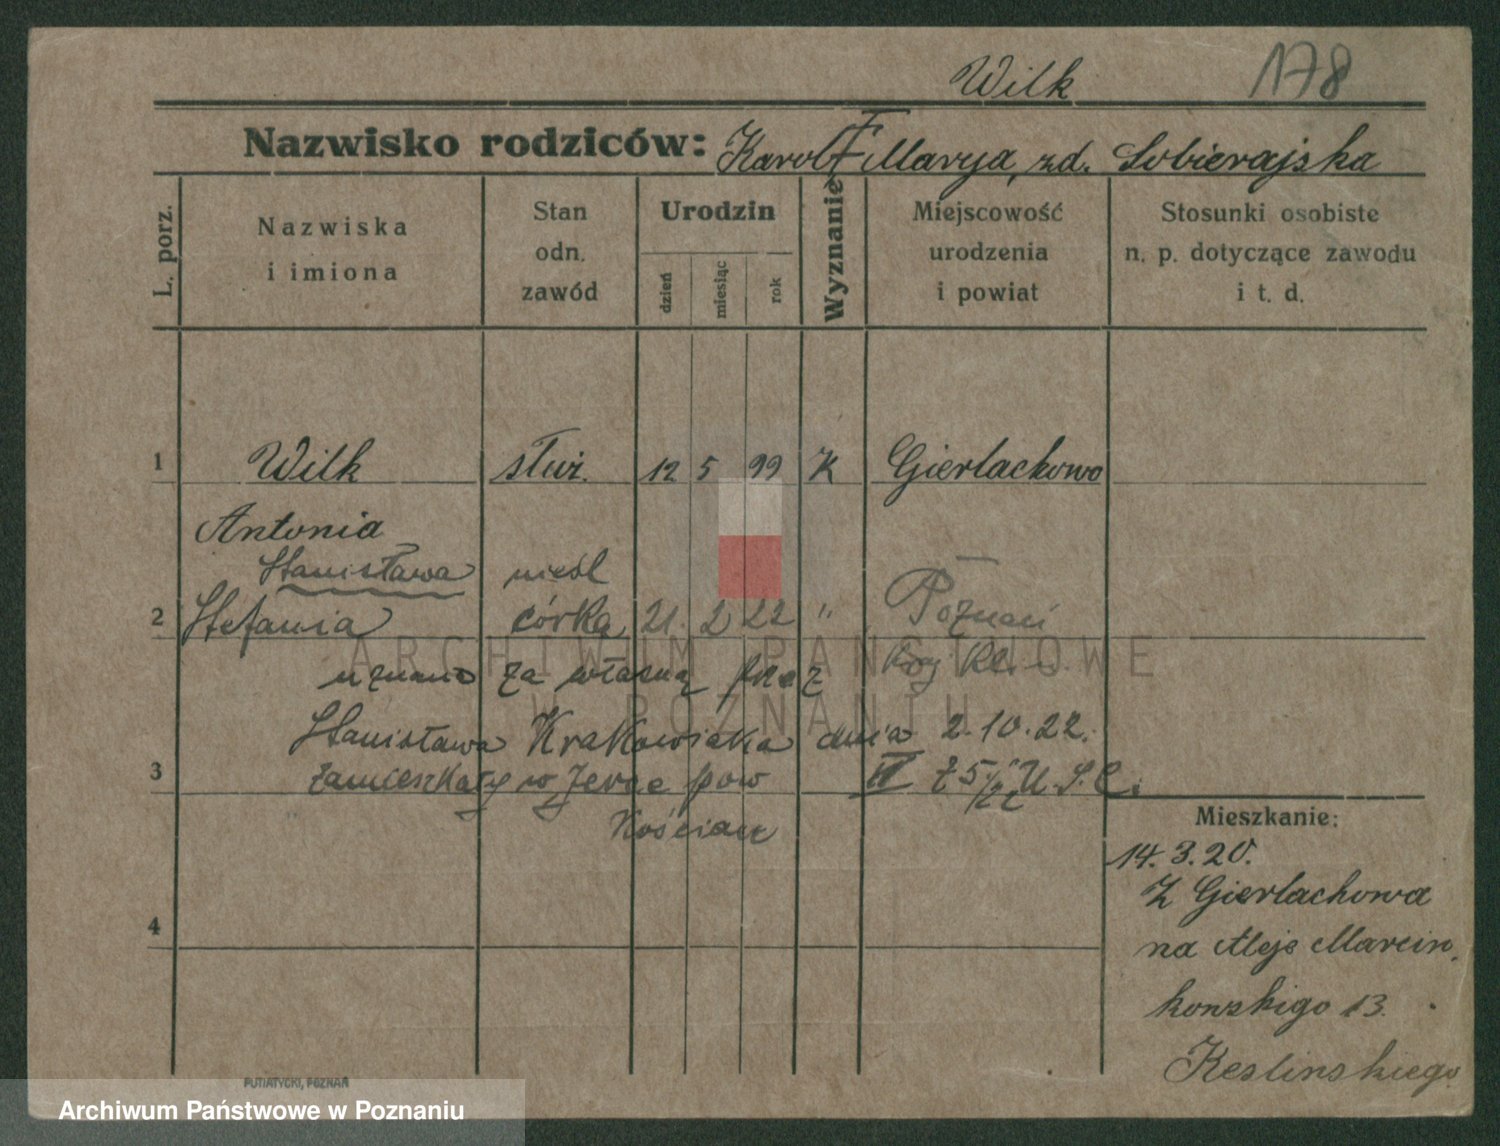 Wilk 178
Nazwisko rodziców: Karol F Marya, zd. Sobierajska
L. porz.
Nazwiska i imiona
Stan odn. zawód
Urodzin
dzień
miesiąc
rok
Wyznanie
Miejscowość urodzenia i powiat
Stosunki osobiste n. p. dotyczące zawodu i t. d.
1 Wilk służ. 12 5 99 K Gierlachowo
Antonia
Stanisława nieśl
2 Stefania córka 21. 2 22 " Poznań
uznano za własną przez
Stanisława Krakowiaka dnia 2.10.22.
3 zamieszkały w Jerce pow U.S.C.
Kościan
Mieszkanie:
14. 3. 20.
4 Z Gierlachowa
na Aleje Marcin
kowskigo 13.
Keslinskiego
PUTIATYCKI, POZNAŃ
ARCHIWUM PAŃSTWOWE
W POZNANIU
Archiwum Państwowe w Poznaniu